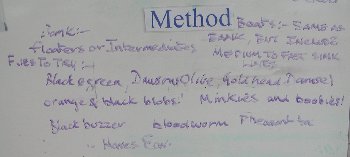 Method
Bank:- Boats:- SAME AS
Floaters or Intermediates BANK, BUT INCLUDE
MEDIUM TO FAST SINK
LINES
FLIES TO TRY:-
Black & green, Damsons Olive, Gold head
orange & black blobs! Minkies and boobies!
Black buzzer bloodworm Pheasant
Hares Ear.